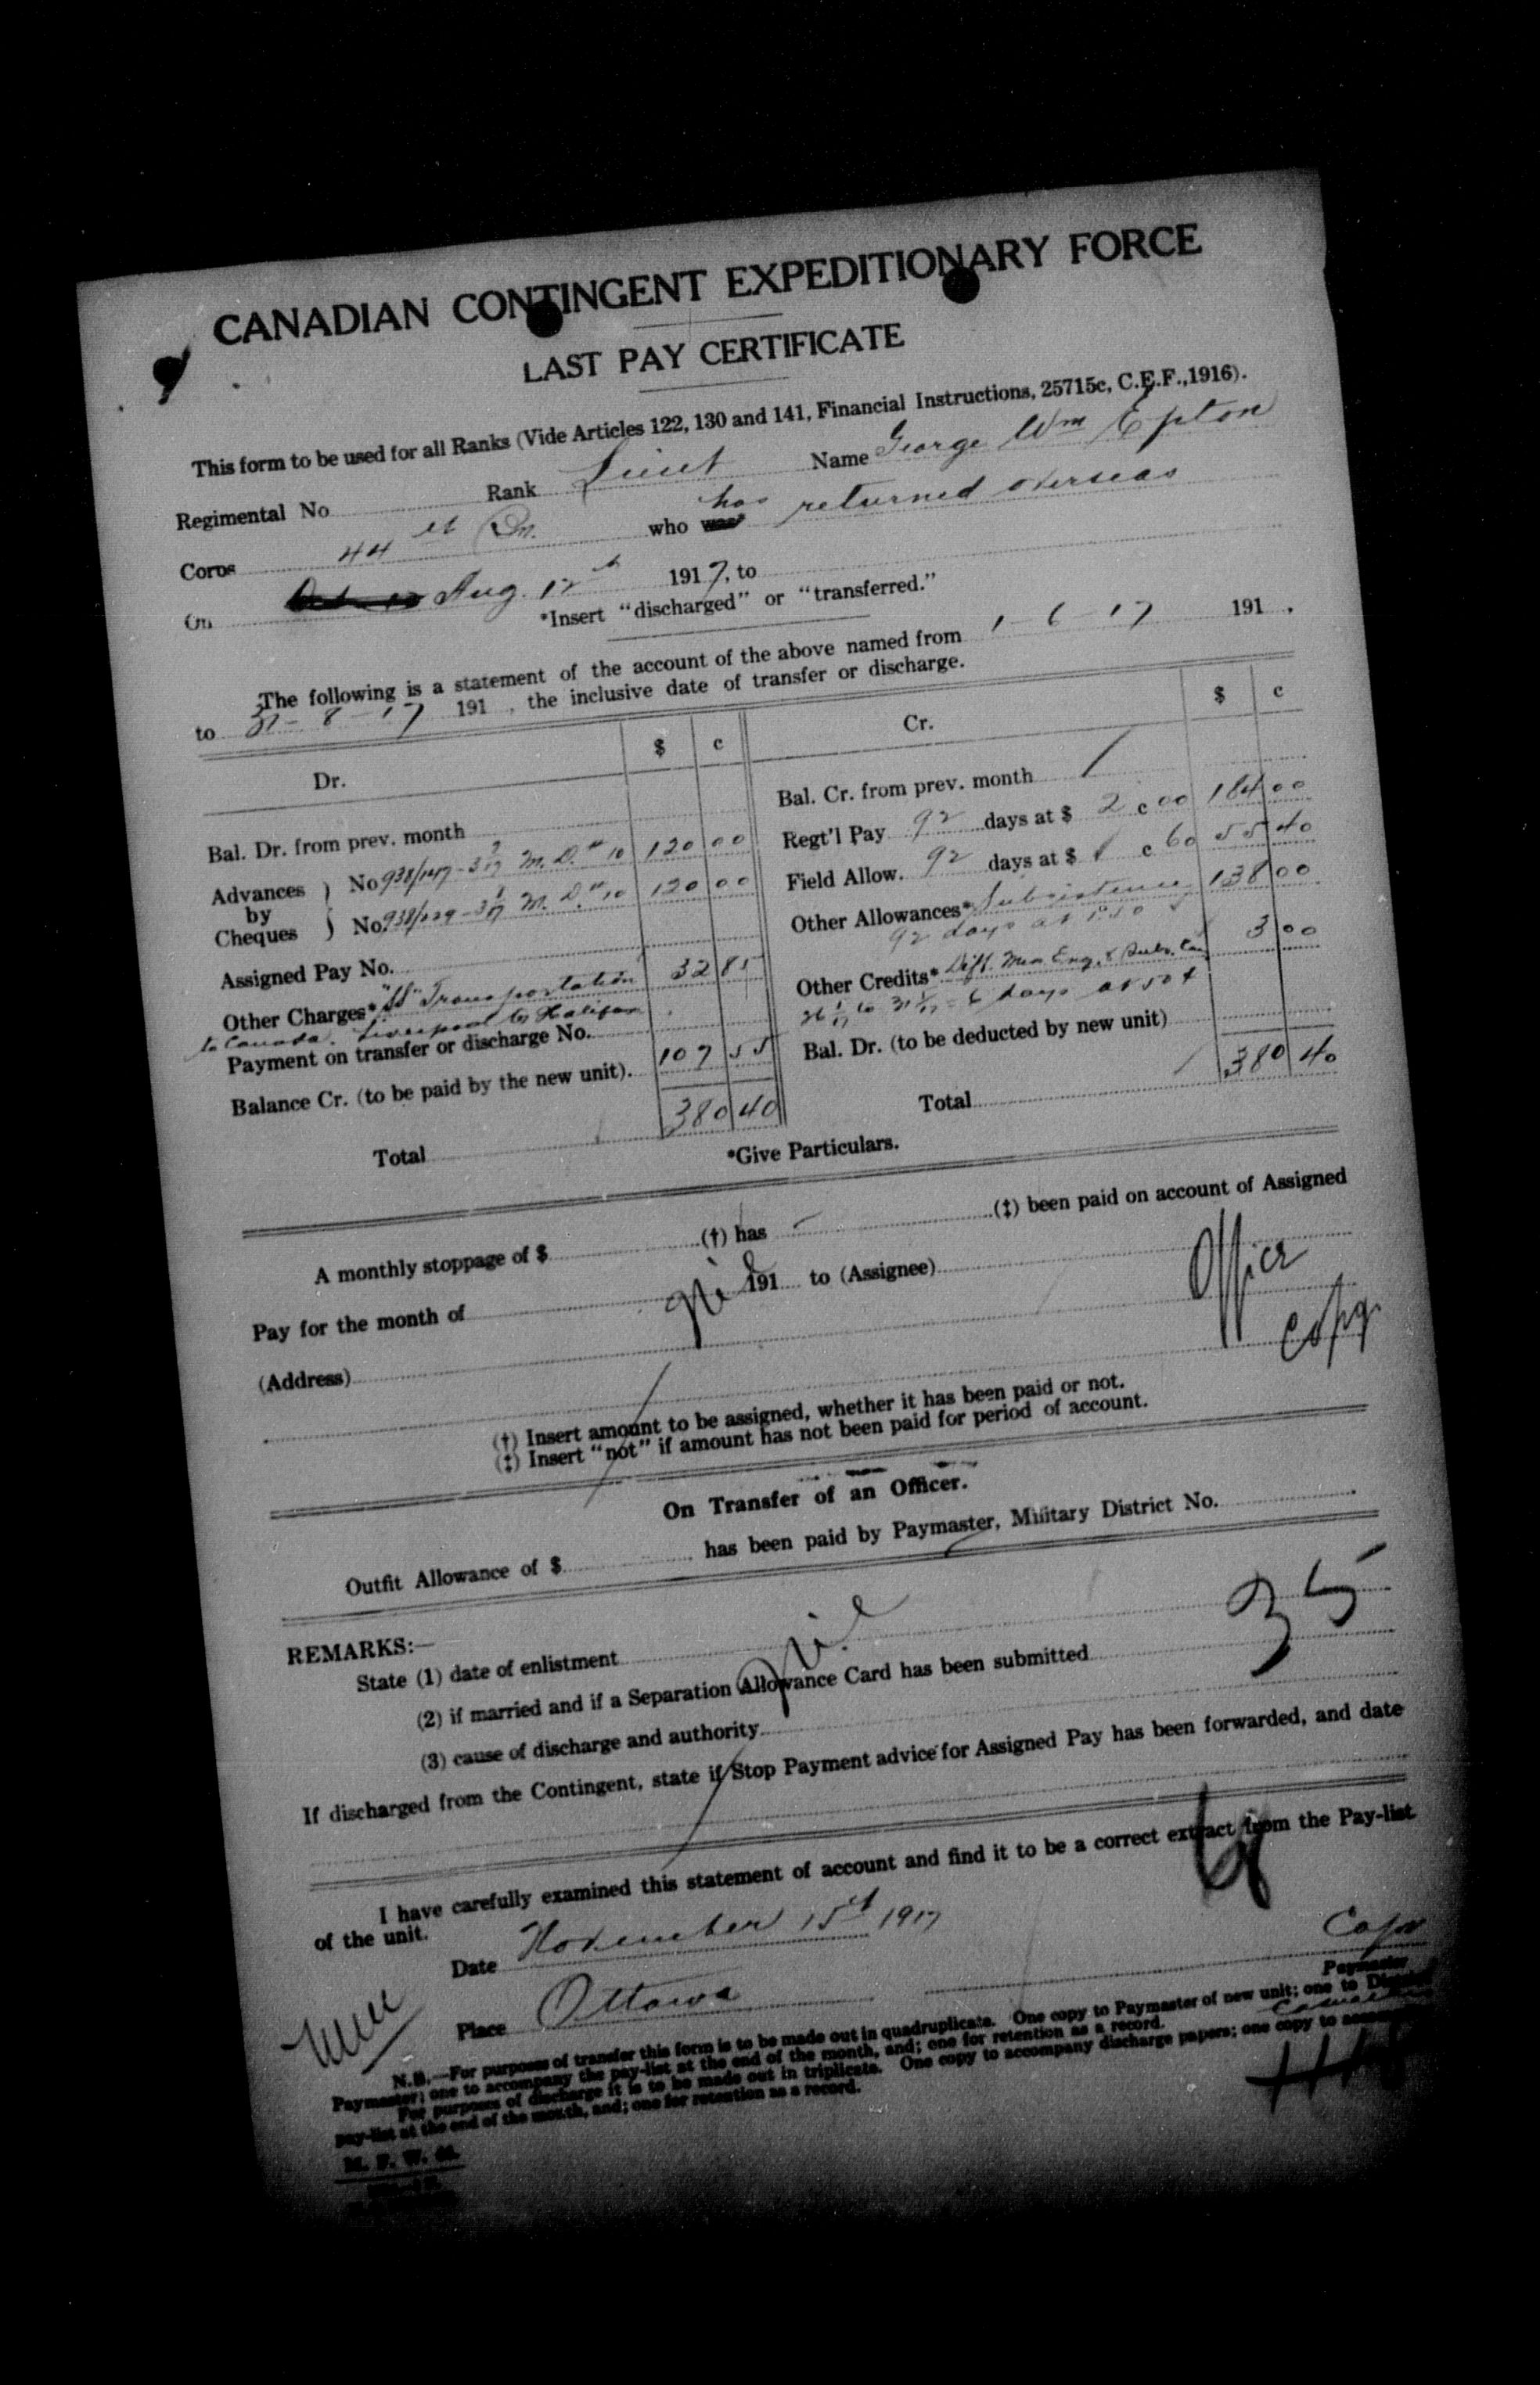 CANADIAN CONTINGENT EXPEDITIONARY FORCE
LAST PAY CERTIFICATE
This form to be used for all Ranks (Vide Articles 122, 130 and 141, Financial Instructions, 25715c, C.E.F.,1916).
Regimental No. Rank Lieut Name George Wm Epton
Corps 44th Bn. who has returned overseas
On Aug. 12th 1917, to
*Insert "discharged" or "transferred."
The following is a statement of the account of the above named from 1-6-17 191 .
to 31-8-17 191 , the inclusive date of transfer or discharge.
Dr. $ c Cr. $ c
Bal. Dr. from prev. month
Advances by Cheques } No M. D. # 10 120 00
No. M. D. # 10 120 00
Assigned Pay No.
Other Charges* "SS" Transportation 32 85
to Canada. Liverpool to Halifax
Payment on transfer or discharge No.
Balance Cr. (to be paid by the new unit). 107 55
Total 380 40
Bal. Cr. from prev. month /
Regt'l Pay 92 days at $ 2 c 00 184 00
Field Allow. 92 days at $ c 60 55 40
Other Allowances* Subsistence 138 00
92 days at 1.50
Other Credits* Diff. 3 00
6 days at 50 ¢
Bal. Dr. (to be deducted by new unit)
Total 380 40
*Give Particulars.
A monthly stoppage of $ (†) has (‡) been paid on account of Assigned
Pay for the month of 191 to (Assignee)
Nil
Office
Copy
(Address)
(†) Insert amount to be assigned, whether it has been paid or not.
(‡) Insert "not" if amount has not been paid for period of account.
On Transfer of an Officer.
Outfit Allowance of $ has been paid by Paymaster, Military District No.
REMARKS:—
State (1) date of enlistment
Nil
35
(2) if married and if a Separation Allowance Card has been submitted
(3) cause of discharge and authority
If discharged from the Contingent, state if Stop Payment advice for Assigned Pay has been forwarded, and date
I have carefully examined this statement of account and find it to be a correct extract from the Pay-list
of the unit.
Date November 15th 1917
Place Ottawa
Paymaster
N.B.—For purposes of transfer this form is to be made out in quadruplicate. One copy to Paymaster of new unit; one to
Paymaster; one to accompany the pay-list at the end of the month, and; one for retention as a record.
For purposes of discharge it is to be made out in triplicate. One copy to accompany discharge papers; one copy to
pay-list at the end of the month, and; one for retention as a record.
M. F. W.